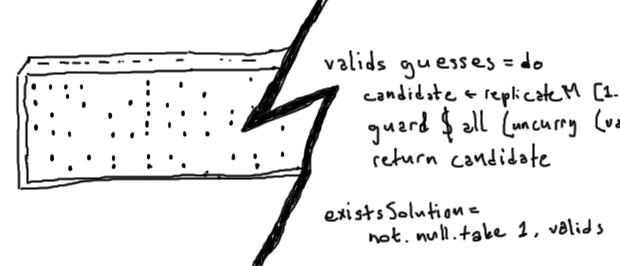 valids guesses = do
candidate ← replicateM [1.
guard $ all (uncurry (va
return candidate
existsSolution =
not. null. take 1. valids